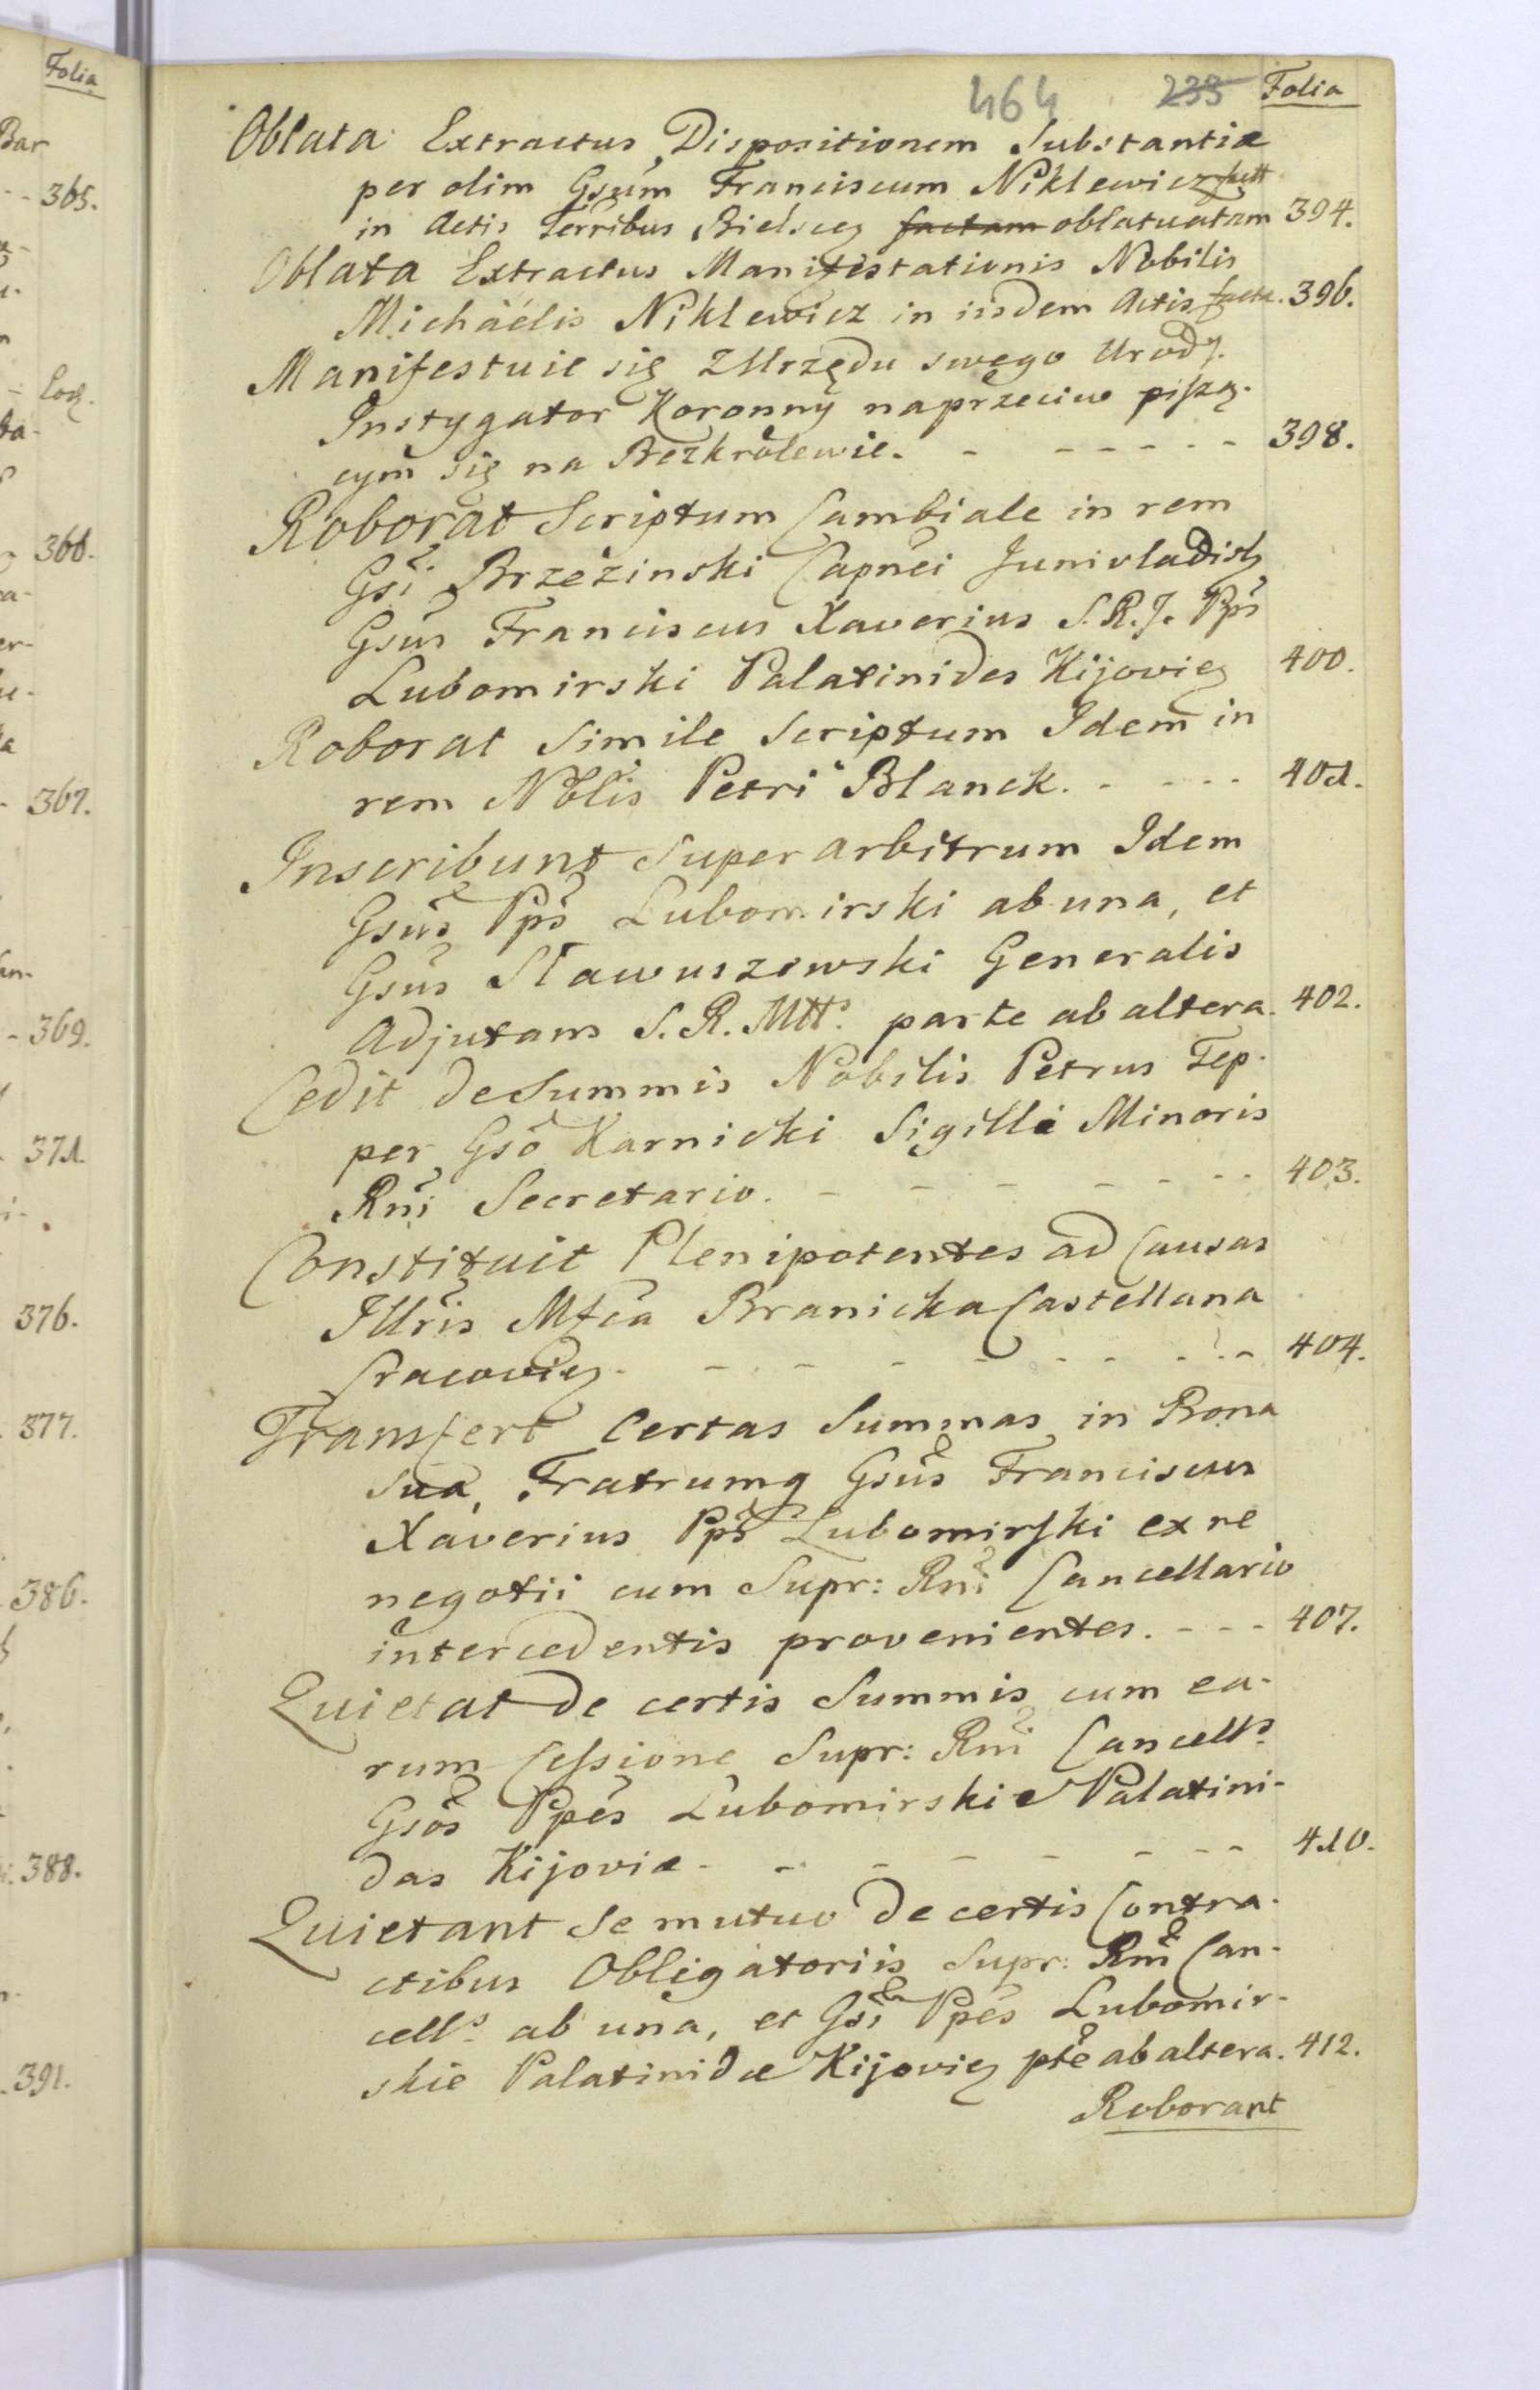 Folia
Bar
365.
Eoq.
366.
367.
369.
371.
376.
377.
386.
388.
391.
464 235 Folia
Oblata Extractus Dispositionem Substantiæ
per olim Gsum Franciscum Niklewicz fact
in Actis Terribus Bielscen factam oblatuatam 394.
Oblata Extractus Manifestationis Nobilis
Michäelis Niklewicz in iisdem Actis facta. 396.
Manifestuie się z Urzędu swego Urodz.
Instygator Koronny naprzeciw piszą-
cym się na Bezkrólewie. - - - - - - 398.
Roborat Scriptum Cambiale in rem
Gsi Brzezinski Capnei Junivladisl
Gsus Franciscus Xaverius S.R.J. Pps
Lubomirski Palatinides Kijovien 400.
Roborat Simile Scriptum Idem in
rem Nobilis Petri Blanck. - - - - 401.
Inscribunt Superarbitrum Idem
Gsus Pps Lubomirski ab una, et
Gsus Stawuszewski Generalis
Adjutans S. R. Mtt. parte ab altera. 402.
Cedit de Summis Nobilis Petrus Tep-
per Gso Karnicki Sigilli Minoris
Rni Secretario. - - - - - - - 403.
Constituit Plenipotentes ad Causas
Illris Mfca Branicka Castellana
Cracovien - - - - - - - - - 404.
Transfert Certas Summas in Bona
Sua, Fratrumq Gsus Franciscus
Xaverius Pps Lubomirski ex re
negotii cum Supr: Rni Cancellario
intercedentis provenientes. - - - 407.
Quietat de certis Summis cum ea-
rum Cessione Supr: Rni Cancells
Gsos Ppes Lubomirskie Palatini-
das Kijoviæ - - - - - - - 410.
Quietant se mutuo de certis Contra-
ctibus Obligatoriis Supr: Rni Can-
cells ab una, et Gsi Ppes Lubomir-
skie Palatinidæ Kijovien pte ab altera. 412.
Roborant